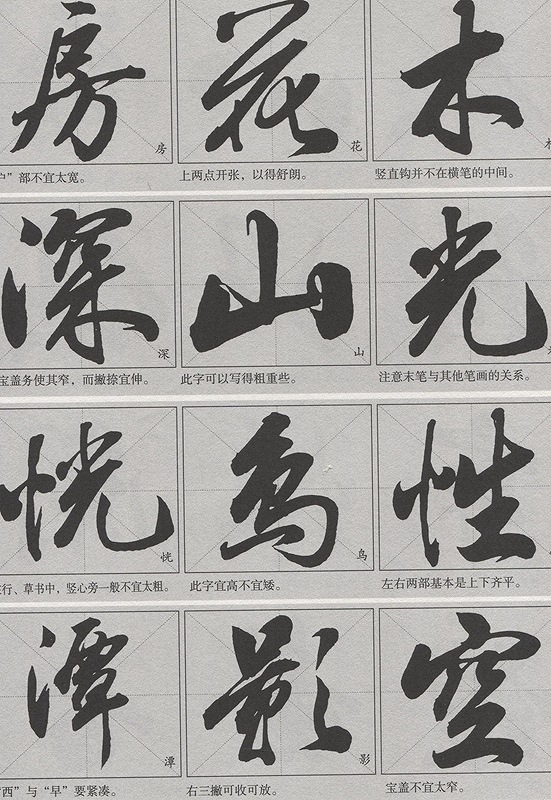 房 花 木
房 花
户”部不宜太宽。
上两点开张，以得舒朗。
竖直钩并不在横笔的中间。
深 山 光
深 山
宝盖务使其窄，而撇捺宜伸。
此字可以写得粗重些。
注意末笔与其他笔画的关系。
恍 鸟 性
恍 鸟
行、草书中，竖心旁一般不宜太粗。
此字宜高不宜矮。
左右两部基本是上下齐平。
潭 影 空
潭 影
“西”与“早”要紧凑。
右三撇可收可放。
宝盖不宜太窄。